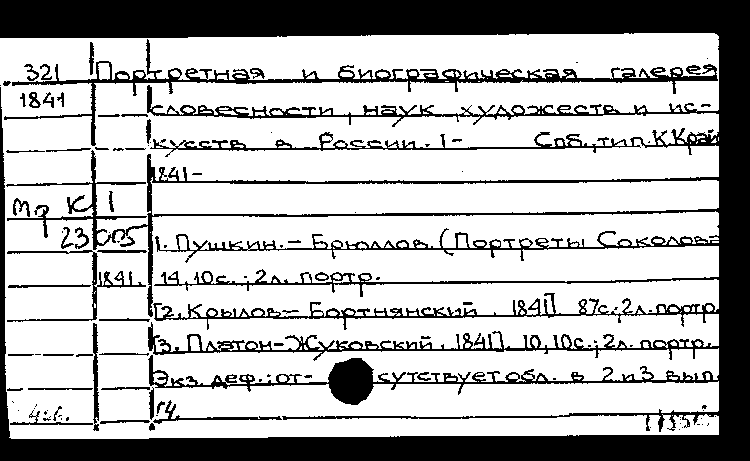 321 Портретная и биографическая галерея
1841 словесности, наук, художеств и ис-
кусств в России. 1- Спб., тип. К.Край
1841-
Мф К 1
23 СП5 1. Пушкин. - Брюллов. (Портреты Соколова
1841. 14, 10с.; 2л. портр.
[2. Крылов - Бортнянский. 1841]. 87с.; 2л. портр.
[3. Платон-Жуковский. 1841]. 10, 10с.; 2л. портр.
Экз. деф.: от- сутствует обл. в 2 и 3 вып.